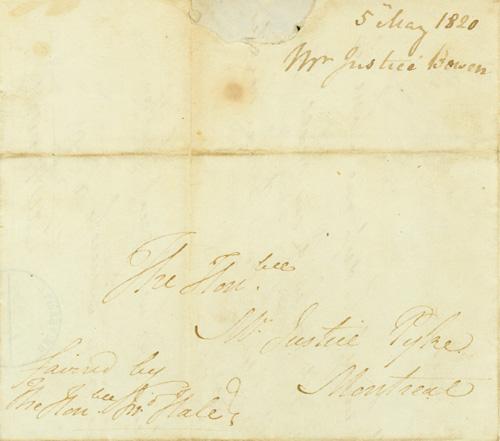 5 May 1820
Mr Justice Bowen
The Hon.ble
Mr Justice Pyke
Montreal
favored by
The Hon.ble Jno Hale